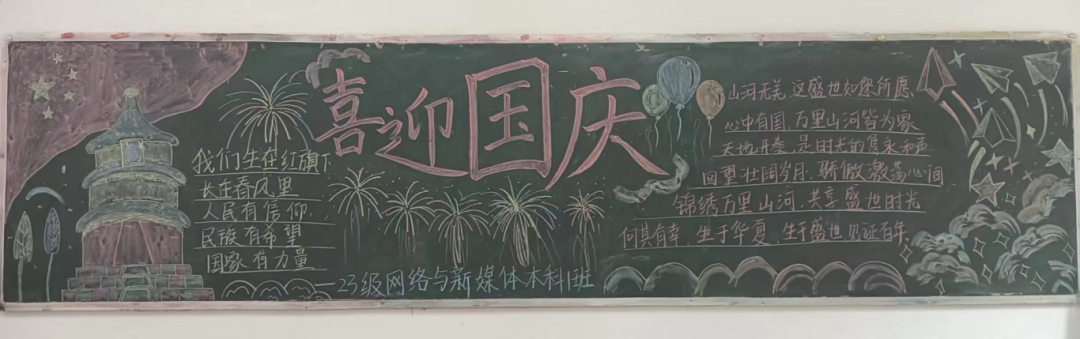 喜迎国庆
我们生在红旗下
长在春风里
人民有信仰
民族有希望
国家有力量
23级网络与新媒体本科1班
山河无恙 这盛世如您所愿
心中有国 万里山河皆为家
天地开泰 是时光的隽永和声
回望壮阔岁月 骄傲激荡心间
锦绣万里山河 共享盛世时光
何其有幸 生于华夏 生于盛世 见证百年